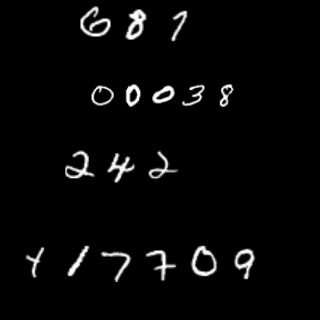 687
00038
242
417709